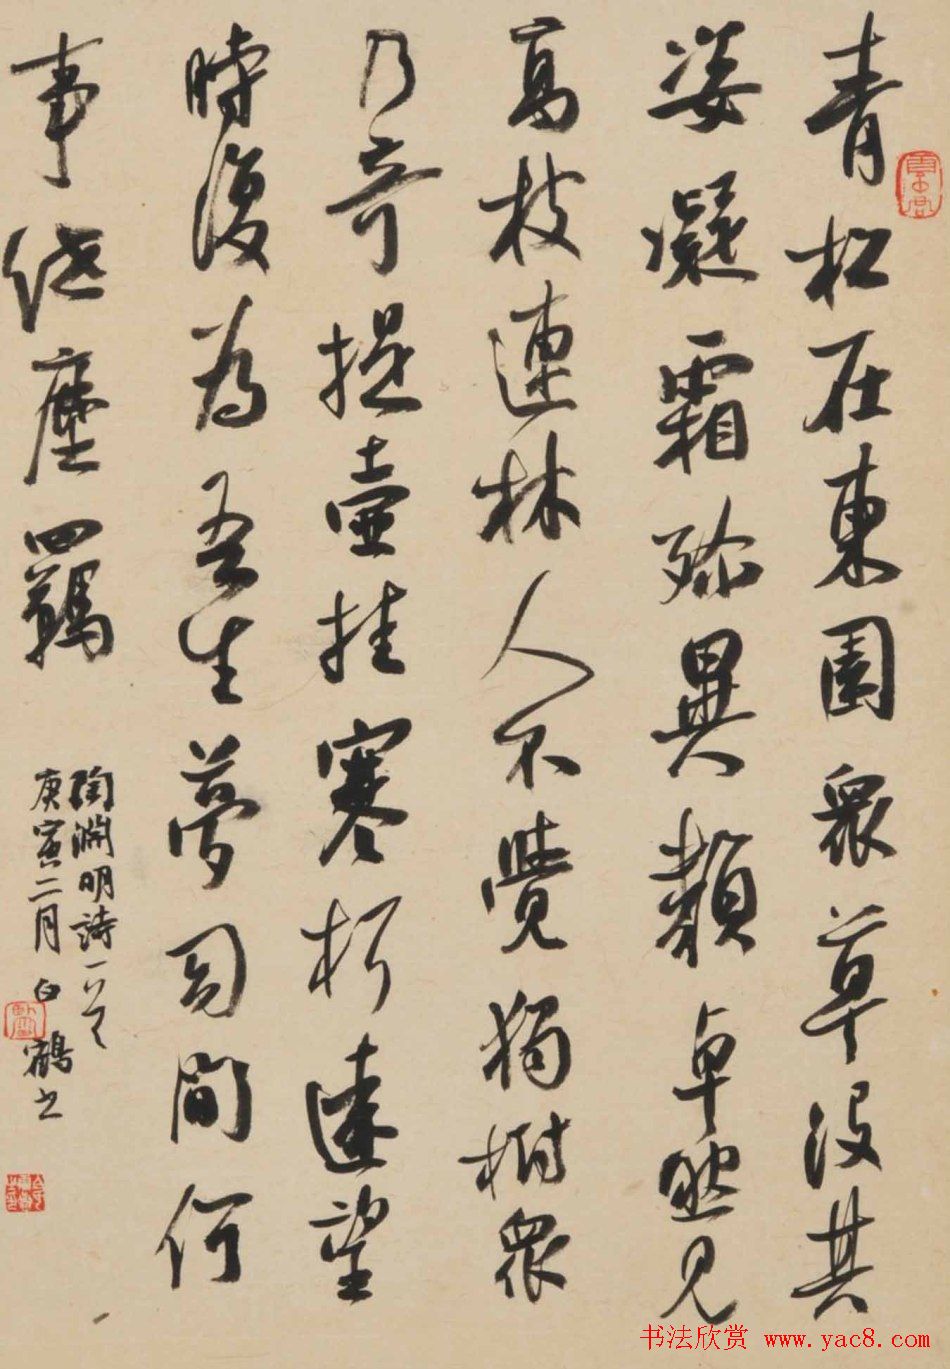 青松在東園衆草沒其
姿凝霜殄異類卓然見
高枝連林人不覺獨樹衆
乃奇提壺挂寒柯遠望
時復為吾生夢幻間何
事紲塵羈
陶淵明詩一首
庚寅二月白鶴书
书法欣赏 www.yac8.com